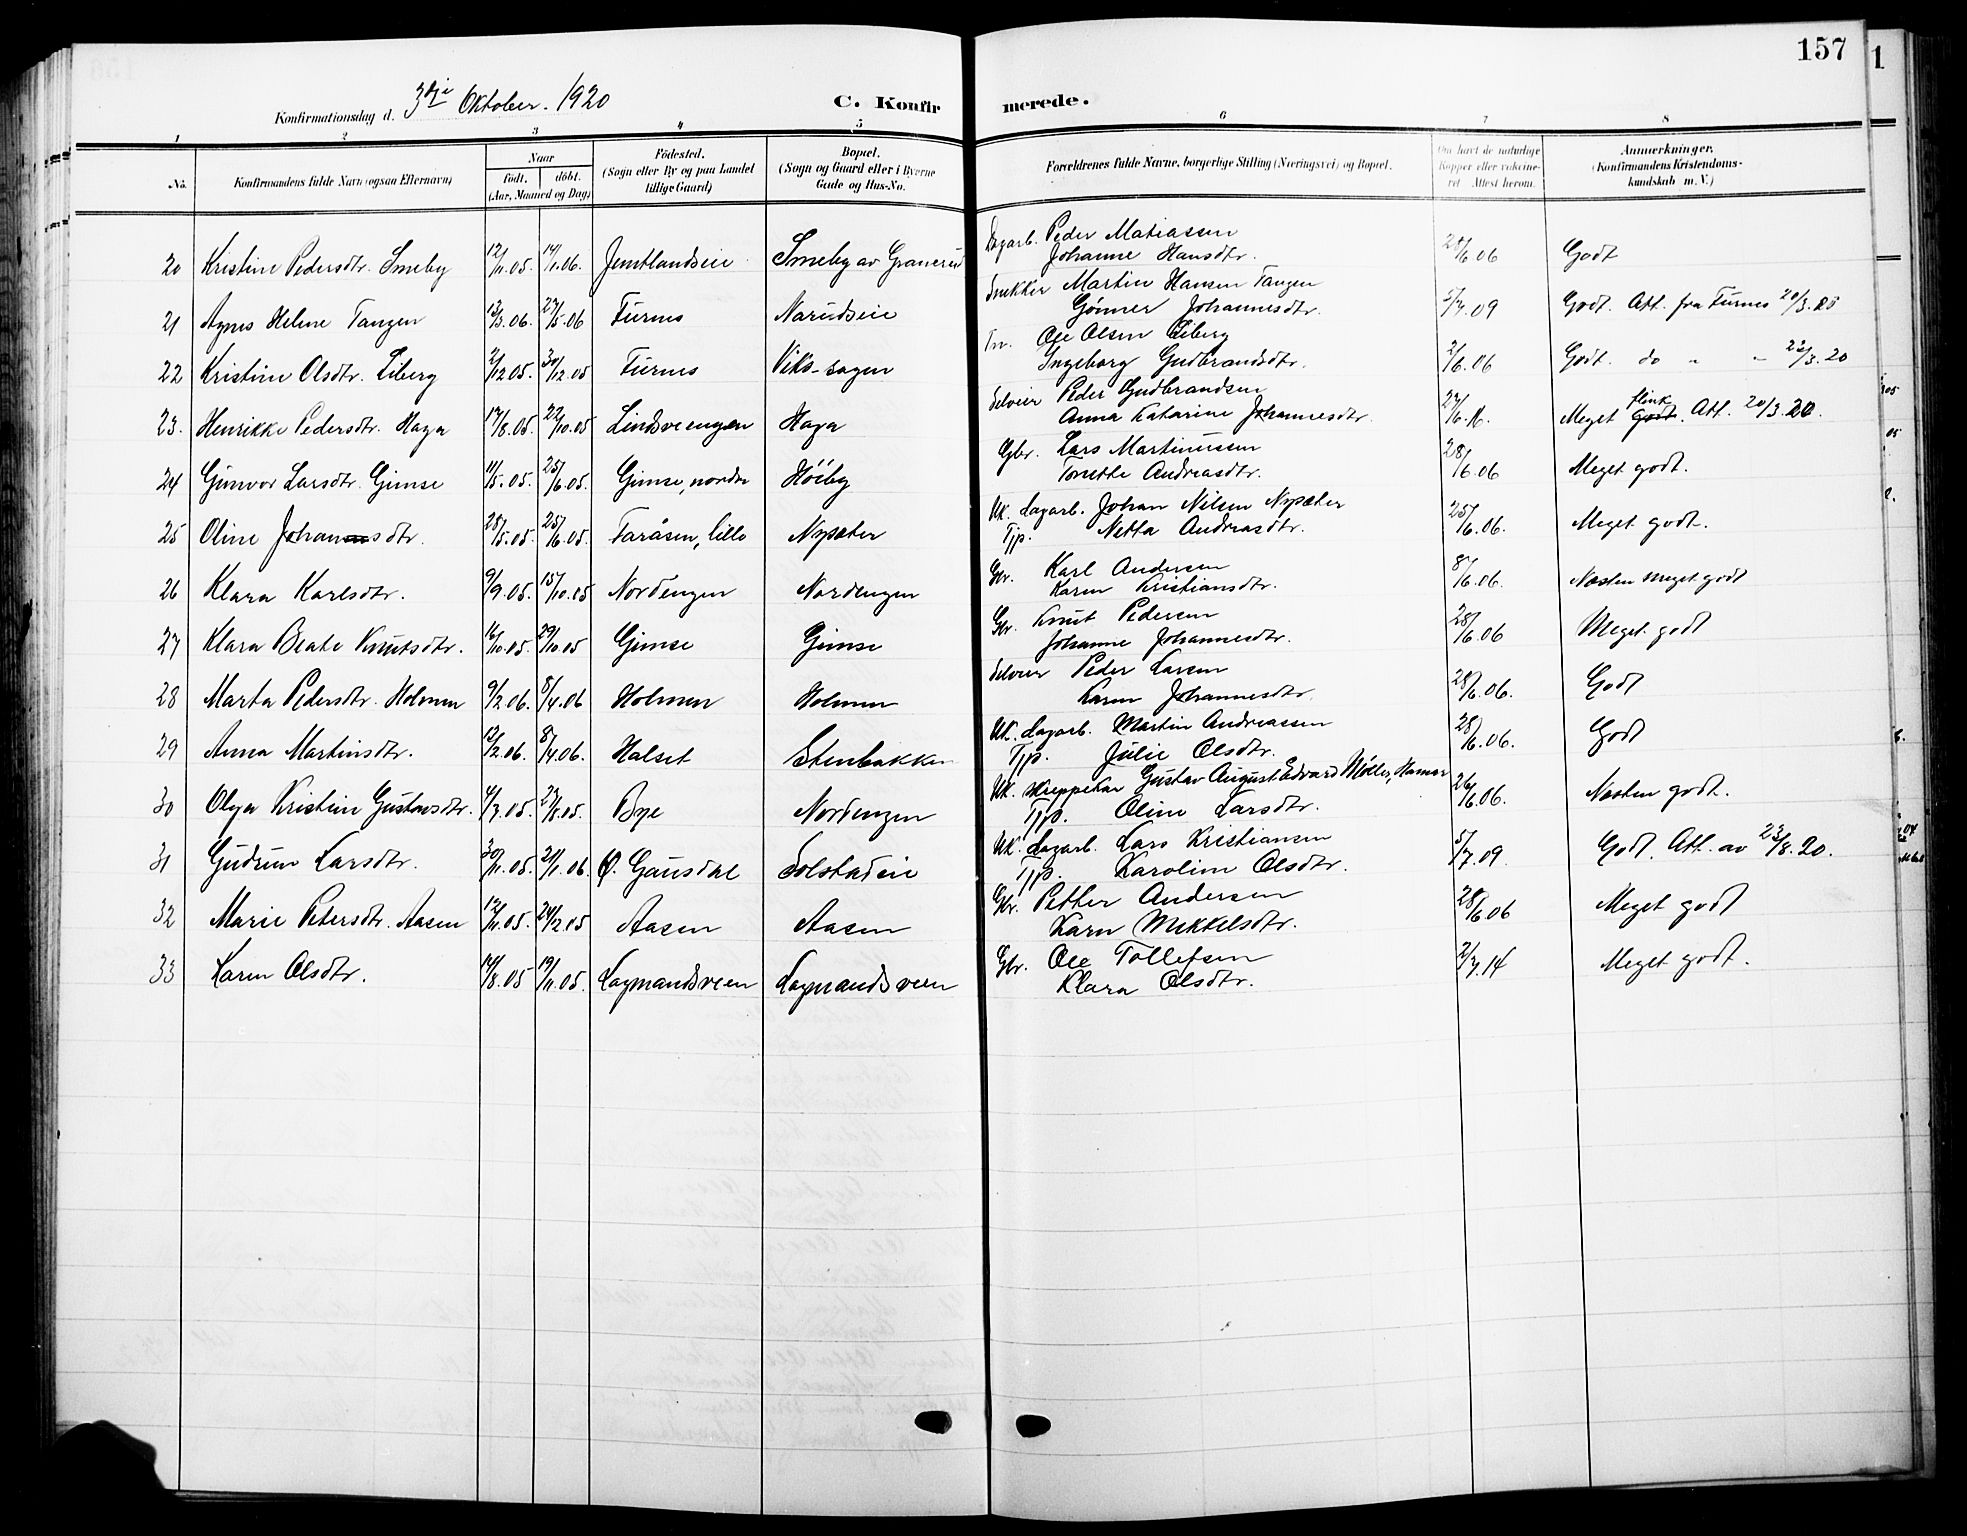 157
Konfirmationsdag d. 3dje Oktober. 1920
C. Konfirmerede.
1 2 3 4 5 6 7 8
No. Konfirmandens fulde Navn (ogsaa Efternavn) Naar født. døbt. (Aar, Maaned og Dag) Fødested. (Sogn eller By og paa Landet tillige Gaard) Bopæl. (Sogn og Gaard eller i Byerne Gade og Hus-No. Forældrenes fulde Navne, borgerlige Stilling (Næringsvei) og Bopæl. Om havt de naturlige Kopper eller vaccineret Attest herom. Anmerkninger. (Konfirmandens Kristendomskundskab m. V.)
20 Kristine Pedersdtr. Smeby 12/11.05. 14/1.06. Jemtlandseie Smeby av Granerud Dagarb. Peder Matiassen
Johanne Hansdtr. 28/6.06 Godt
21 Agnes Helene Tangen 13/3.06. 27/5.06 Furnes Narudseie Snekker Martin Hansen Tangen
Gønner Johannesdtr. 5/7.09 Godt. Att. fra Furnes 20/3.20
22 Kristine Olsdtr. Liberg 2/12.05. 30/12.05 Furnes Viks-sagen Ole Olsen Liberg
Ingeborg Gudbrandsdtr. 2/6.06 Godt. do " " 22/3.20
23. Henrikke Pedersdtr. Haga 17/8.05. 22/10.05 Lindsveengen Haga Selveier Peder Gudbrandsen
Anna Katarine Johannesdtr. Meget flink godt. Att. 20/3.20.
24 Gunvor Larsdtr. Gimse 11/5.05. 25/6.05. Gimse, nordre Höiby Gbr. Lars Martinussen
Tonette Andreasdtr. 28/6.06 Meget godt.
25 Oline Johannsdtr. 28/5.05. 25/6.05. Taråsen, lille Nysæter UK. Dagarb. Johan Nilsen Nysæter
Tjp. Netta Andreasdtr. 25/6.06. Meget godt.
26 Klara Karlsdtr. 9/9.05. 15/10.05 Nordengen Nordengen Gbr. Karl Andersen
Karen Kristiansdtr. 8/6.06. Næsten meget godt
27 Klara Beate Knutsdtr. 16/10.05. 29/10.05 Gimse Gimse Gbr. Knut Pedersen
Johanne Johannesdtr. 28/6.06 Meget godt
28 Marta Pedersdtr. Holmen 9/2.06. 8/4.06 Holmen Holmen Selveier Peder Larsen
Karen Johannesdtr. 28/6.06. Godt
29 Anna Martinsdtr. 12/2.06. 8/4.06. Halset Stenbakken UK. Dagarb. Martin Andreassen
Tjp. Julie Olsdtr. 28/6.06. Godt
30 Olga Kristine Gustavsdtr. 4/7.05. 27/8.05. Bye Nordengen UK. Skreppekar Gustav August Edvard Möller, Hamar
Tjp. Oline Larsdtr. 26/6.06. Næsten godt.
31 Gudrun Larsdtr. 30/11.05. 21/1.06 Ø. Gausdal Solstadeie UK. Dagarb. Lars Kristiansen
Tjp. Karoline Olsdtr. 5/7.09. Godt. Att. av 23/8.20.
32 Marie Petersdtr. Aasen 12/11.05. 24/12.05 Aasen Aasen Gbr. Petter Andersen
Karn Mikkelsdtr. 28/6.06 Meget godt
33 Karen Olsdtr. 14/8.05 19/11.05. Lagmandsveen Lagmandsveen Gbr. Ole Tollefsen
Klara Olsdtr. 2/7.14 Meget godt.